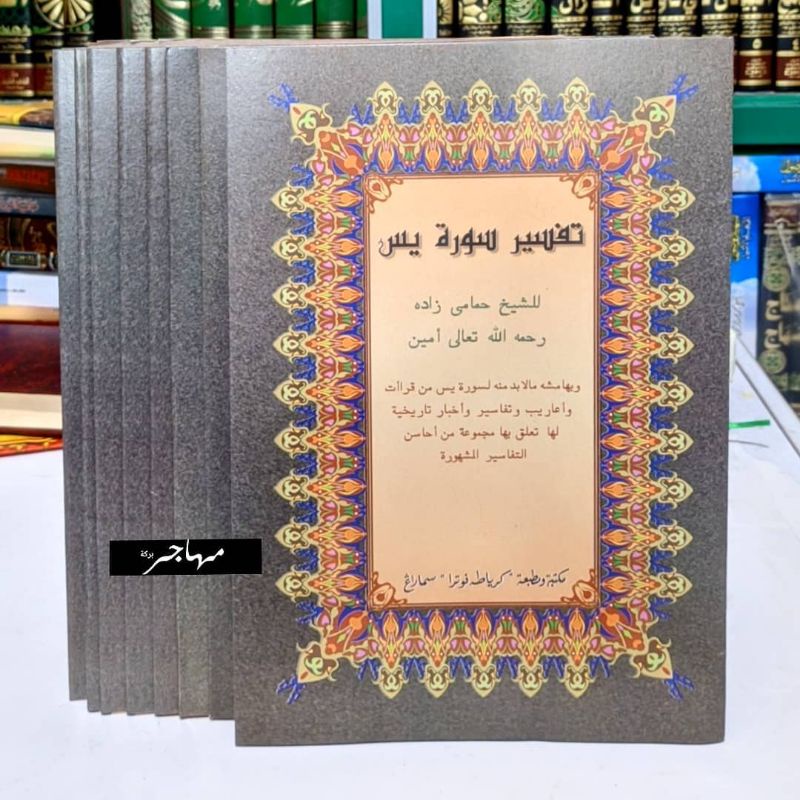 تفسير سورة يس
للشيخ حمامى زاده
رحمه الله تعالى أمين
وبهامشه مالابد منه لسورة يس من قراات
وأعاريب وتفاسير وأخبار تاريخية
لها تعلق بها مجموعة من أحاسن
التفاسير المشهورة
مكتبة ومطبعة "كرياطه فوترا" سماراغ
مهاجر بركة